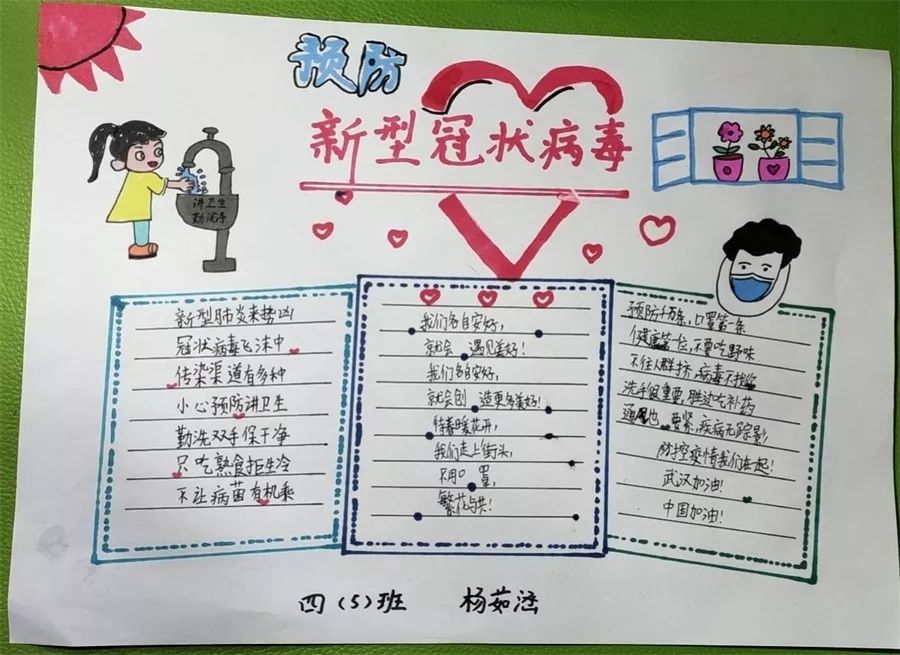 预防
新型冠状病毒
讲卫生
勤洗手
新型肺炎来势凶
冠状病毒飞沫中
传染渠道有多种
小心预防讲卫生
勤洗双手保干净
只吃熟食拒生冷
不让病菌有机乘
我们各自安好,
就会 遇见美好!
我们各自安好,
就会创 造更多美好!
待春暖花开,
我们走上街头,
不用口 罩,
繁花与共!
预防千万条,口罩第一条
健康第一位,不要吃野味
不往人群挤,病毒不找你
洗手很重要,胜过吃补药
通风也 要紧,疾病无踪影
防控疫情我们在一起!
武汉加油!
中国加油!
四(5)班 杨茹涵